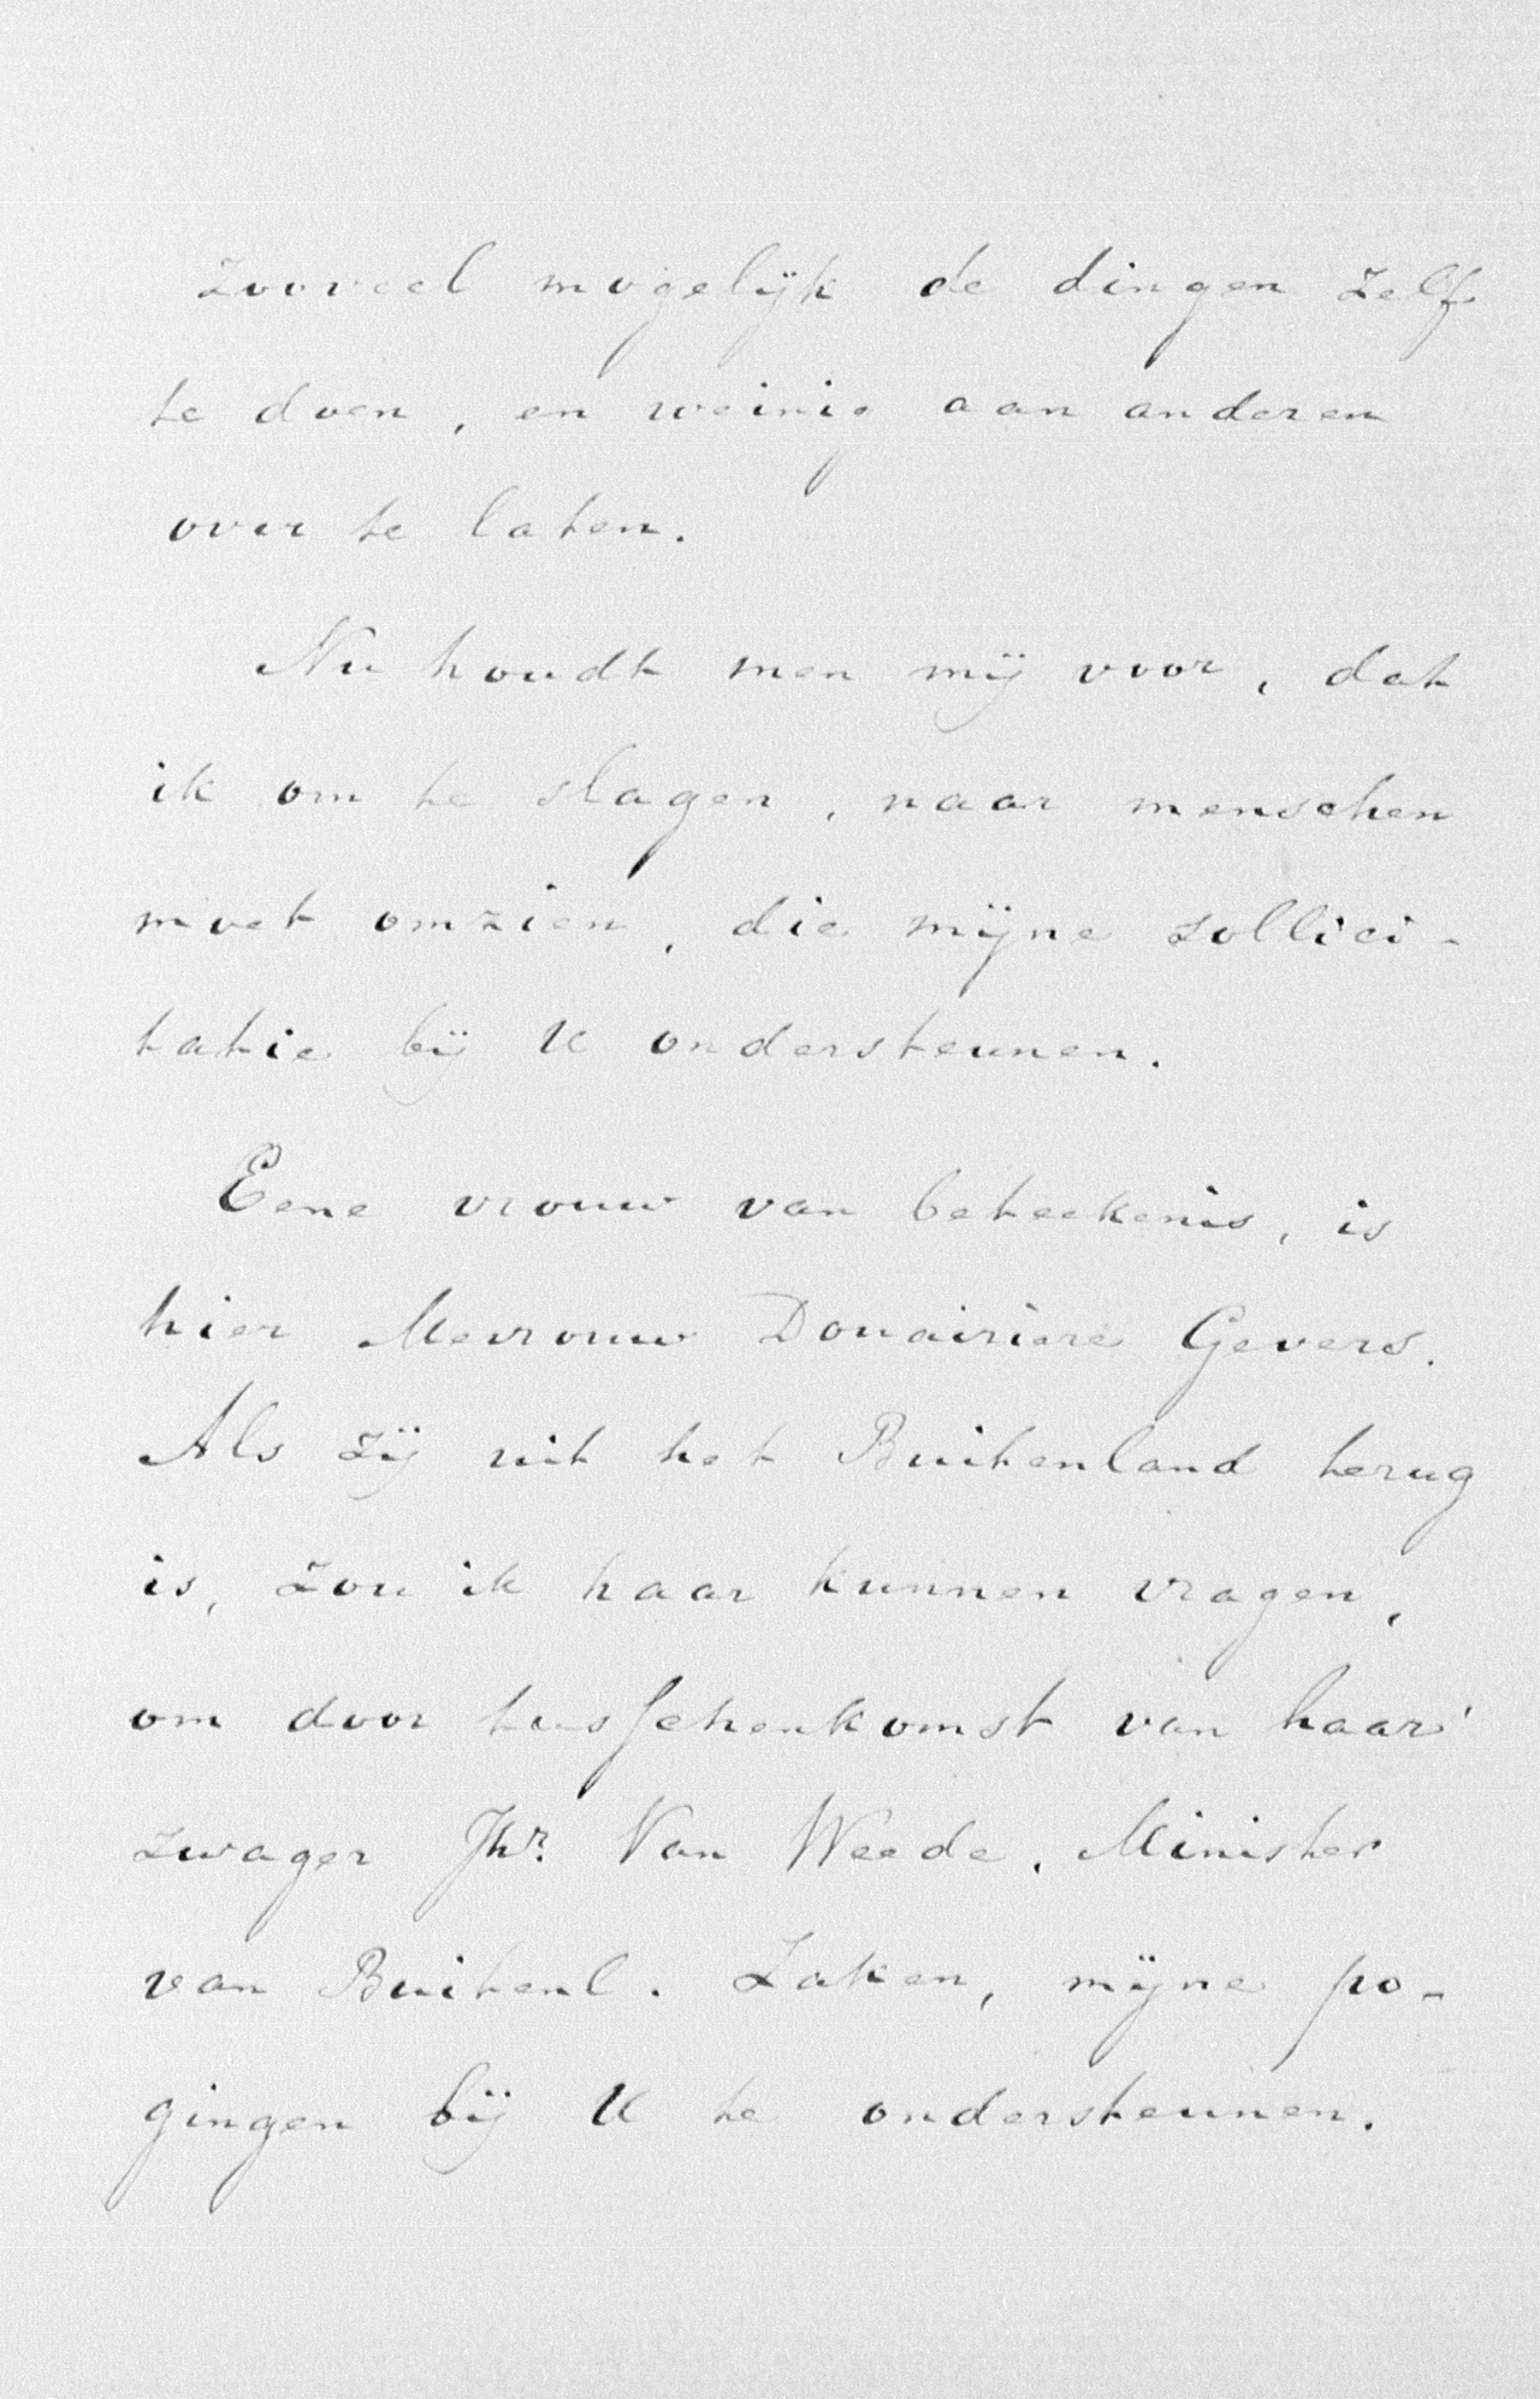 zooveel mogelijk de dingen zelf
te doen, en weinig aan anderen
over te laten.
Nu houdt men mij voor, dat
ik om te slagen, naar menschen
moet omzien, die mijne sollici-
tatie bij U ondersteunen.
Eene vrouw van beteekenis, is
hier Mevrouw Douairiere Gevers.
Als zij uit het Buitenland terug
is, zou ik haar kunnen vragen,
om door tusschenkomst van haar
zwager Jhr. Van Weede, Minister
van Buitenl. Zaken, mijne po-
gingen bij U te ondersteunen.